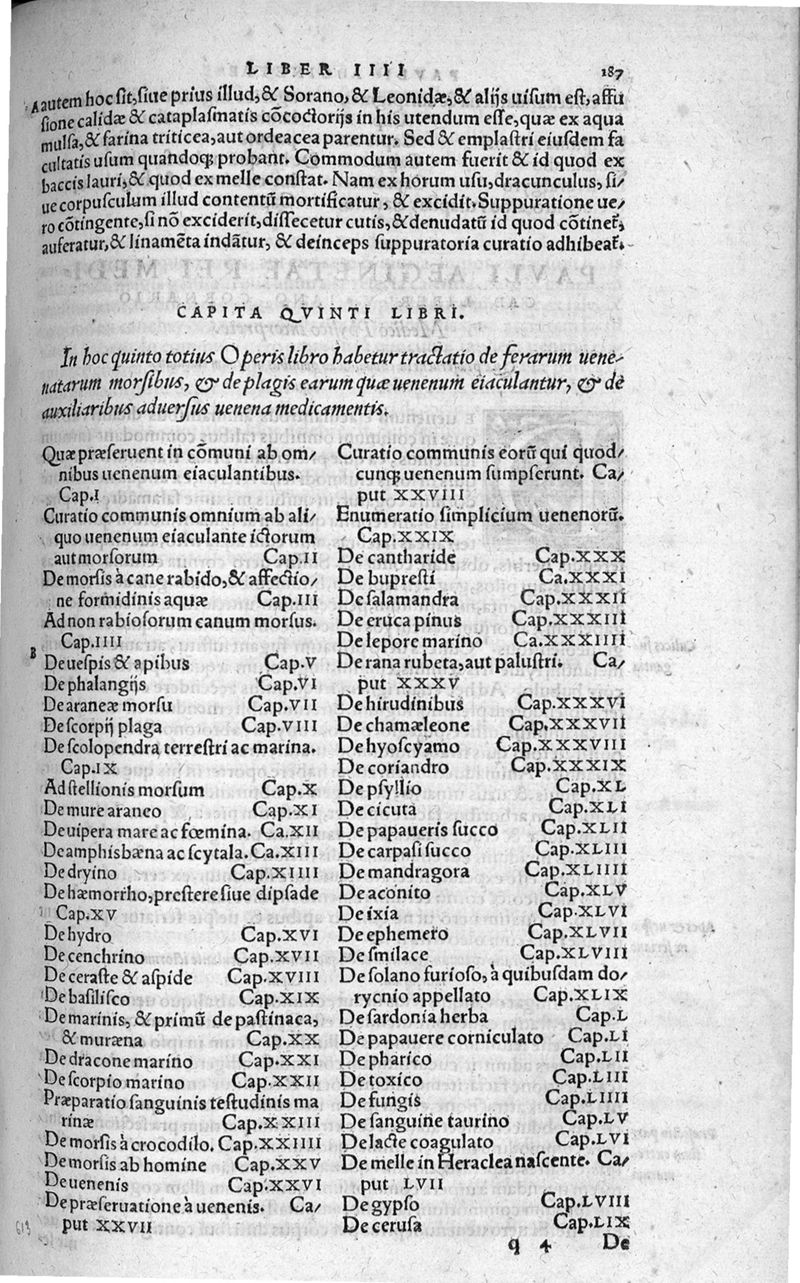 LIBER IIII 187
A autem hoc sit, siue prius illud, & Sorano, & Leonidæ, & alijs uisum est, affu
sione calidæ & cataplasmatis cõcoctorijs in his utendum esse, quæ ex aqua
mulsa, & farina triticea, aut ordeacea parentur. Sed & emplastri eiusdem fa
cultatis usum quandoq; probant. Commodum autem fuerit & id quod ex
baccis lauri, & quod ex melle constat. Nam ex horum usu, dracunculus, si/
ue corpusculum illud contentũ mortificatur, & excidit. Suppuratione ue/
ro cõtingente, si nõ exciderit, dissecetur cutis, & denudatũ id quod cõtinet̃,
auferatur, & linamẽta indãtur, & deinceps suppuratoria curatio adhibeat̃.
CAPITA QVINTI LIBRI.
In hoc quinto totius Operis libro habetur tractatio de ferarum uene-
natarum morsibus, & de plagis earum quæ uenenum eiaculantur, & de
auxiliaribus aduersus uenena medicamentis.
Quæ præseruent in cõmuni ab om/
nibus uenenum eiaculantibus.
Cap.I
Curatio communis omnium ab ali/
quo uenenum eiaculante ictorum
aut morsorum Cap.II
De morsis à cane rabido, & affectio/
ne formidinis aquæ Cap.III
Ad non rabiosorum canum morsus.
Cap.IIII
B De uespis & apibus Cap.V
De phalangijs Cap.VI
De araneæ morsu Cap.VII
De scorpij plaga Cap.VIII
De scolopendra terrestri ac marina.
Cap.IX
Ad stellionis morsum Cap.X
De mure araneo Cap.XI
De uipera mare ac fœmina. Ca.XII
De amphisbæna ac scytala. Ca.XIII
De dryino Cap.XIIII
De hæmorrho, prestere siue dipsade
Cap.XV
De hydro Cap.XVI
De cenchrino Cap.XVII
De ceraste & aspide Cap.XVIII
De basilisco Cap.XIX
De marinis, & primũ de pastinaca,
& muræna Cap.XX
De dracone marino Cap.XXI
De scorpio marino Cap.XXII
Præparatio sanguinis testudinis ma
rinæ Cap.XXIII
De morsis à crocodilo. Cap.XXIIII
De morsis ab homine Cap.XXV
De uenenis Cap.XXVI
De præseruatione à uenenis. Ca/
put XXVII
Curatio communis eorũ qui quod/
cunq; uenenum sumpserunt. Ca/
put XXVIII
Enumeratio simplicium uenenorũ.
Cap.XXIX
De cantharide Cap.XXX
De bupresti Ca.XXXI
De salamandra Cap.XXXII
De eruca pinus Cap.XXXIII
De lepore marino Ca.XXXIIII
De rana rubeta, aut palustri. Ca/
put XXXV
De hirudinibus Cap.XXXVI
De chamæleone Cap.XXXVII
De hyoscyamo Cap.XXXVIII
De coriandro Cap.XXXIX
De psyllio Cap.XL
De cicuta Cap.XLI
De papaueris succo Cap.XLII
De carpasi succo Cap.XLIII
De mandragora Cap.XLIIII
De aconito Cap.XLV
De ixia Cap.XLVI
De ephemero Cap.XLVII
De smilace Cap.XLVIII
De solano furioso, à quibusdam do/
rycnio appellato Cap.XLIX
De sardonia herba Cap.L
De papauere corniculato Cap.LI
De pharico Cap.LII
De toxico Cap.LIII
De fungis Cap.LIIII
De sanguine taurino Cap.LV
De lacte coagulato Cap.LVI
De melle in Heraclea nascente. Ca/
put LVII
De gypso Cap.LVIII
De cerusa Cap.LIX
q 4 De